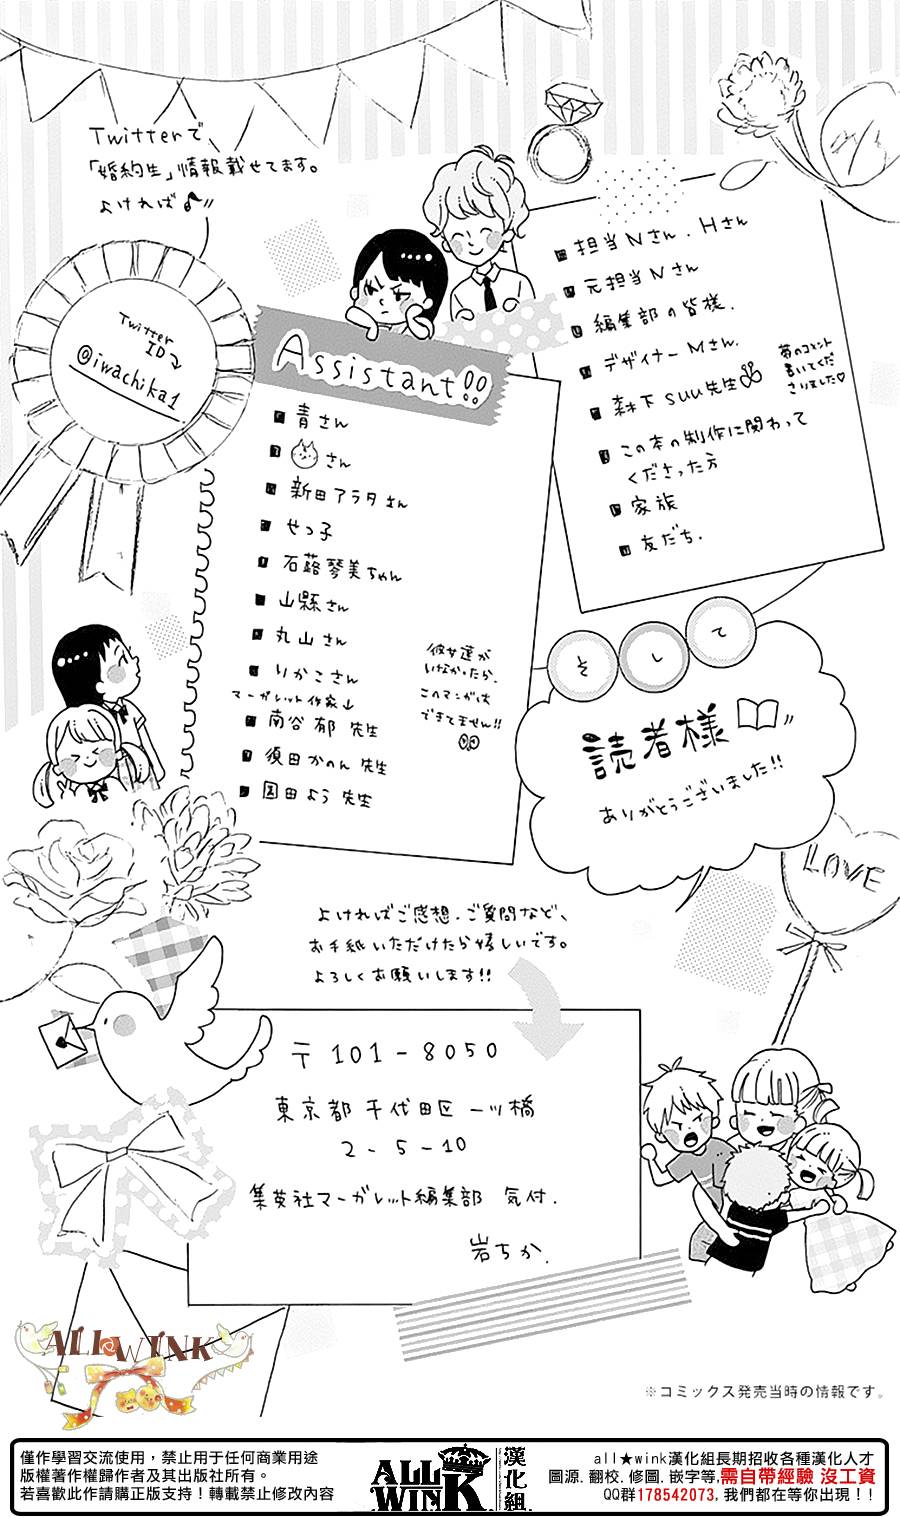 Twitterで、
「婚約生」情報載せてます。
よければ♪
Twitter
ID
@iwachika1
Assistant!!
青さん
さん
新田アラタさん
せっ子
石蕗琴美ちゃん
山縣さん
丸山さん
りかこさん
マーガレット作家↓
南谷 郁 先生
須田かのん 先生
園田よう 先生
彼女達が
いなかったら、
このマンガは
できてません!!
担当Nさん.Hさん
元担当Nさん
編集部の皆様.
デザイナーMさん.
森下suu先生
帯のコメント
書いてくだ
さいました♡
この本の制作に関わって
くださった方
家族
友だち.
そして
読者様
ありがとうございました!!
LOVE
よければご感想.ご質問など、
お手紙いただけたら嬉しいです。
よろしくお願いします!!
〒101-8050
東京都千代田区一ツ橋
2-5-10
集英社マーガレット編集部 気付.
岩ちか.
ALL WINK
※コミックス発売当時の情報です。
僅作學習交流使用，禁止用于任何商業用途
版權著作權歸作者及其出版社所有。
若喜歡此作請購正版支持！轉載禁止修改內容
ALL
WINK
漢化組
all★wink漢化組長期招收各種漢化人才
圖源. 翻校. 修圖. 嵌字等,需自帶經驗 沒工資
QQ群178542073, 我們都在等你出現！！